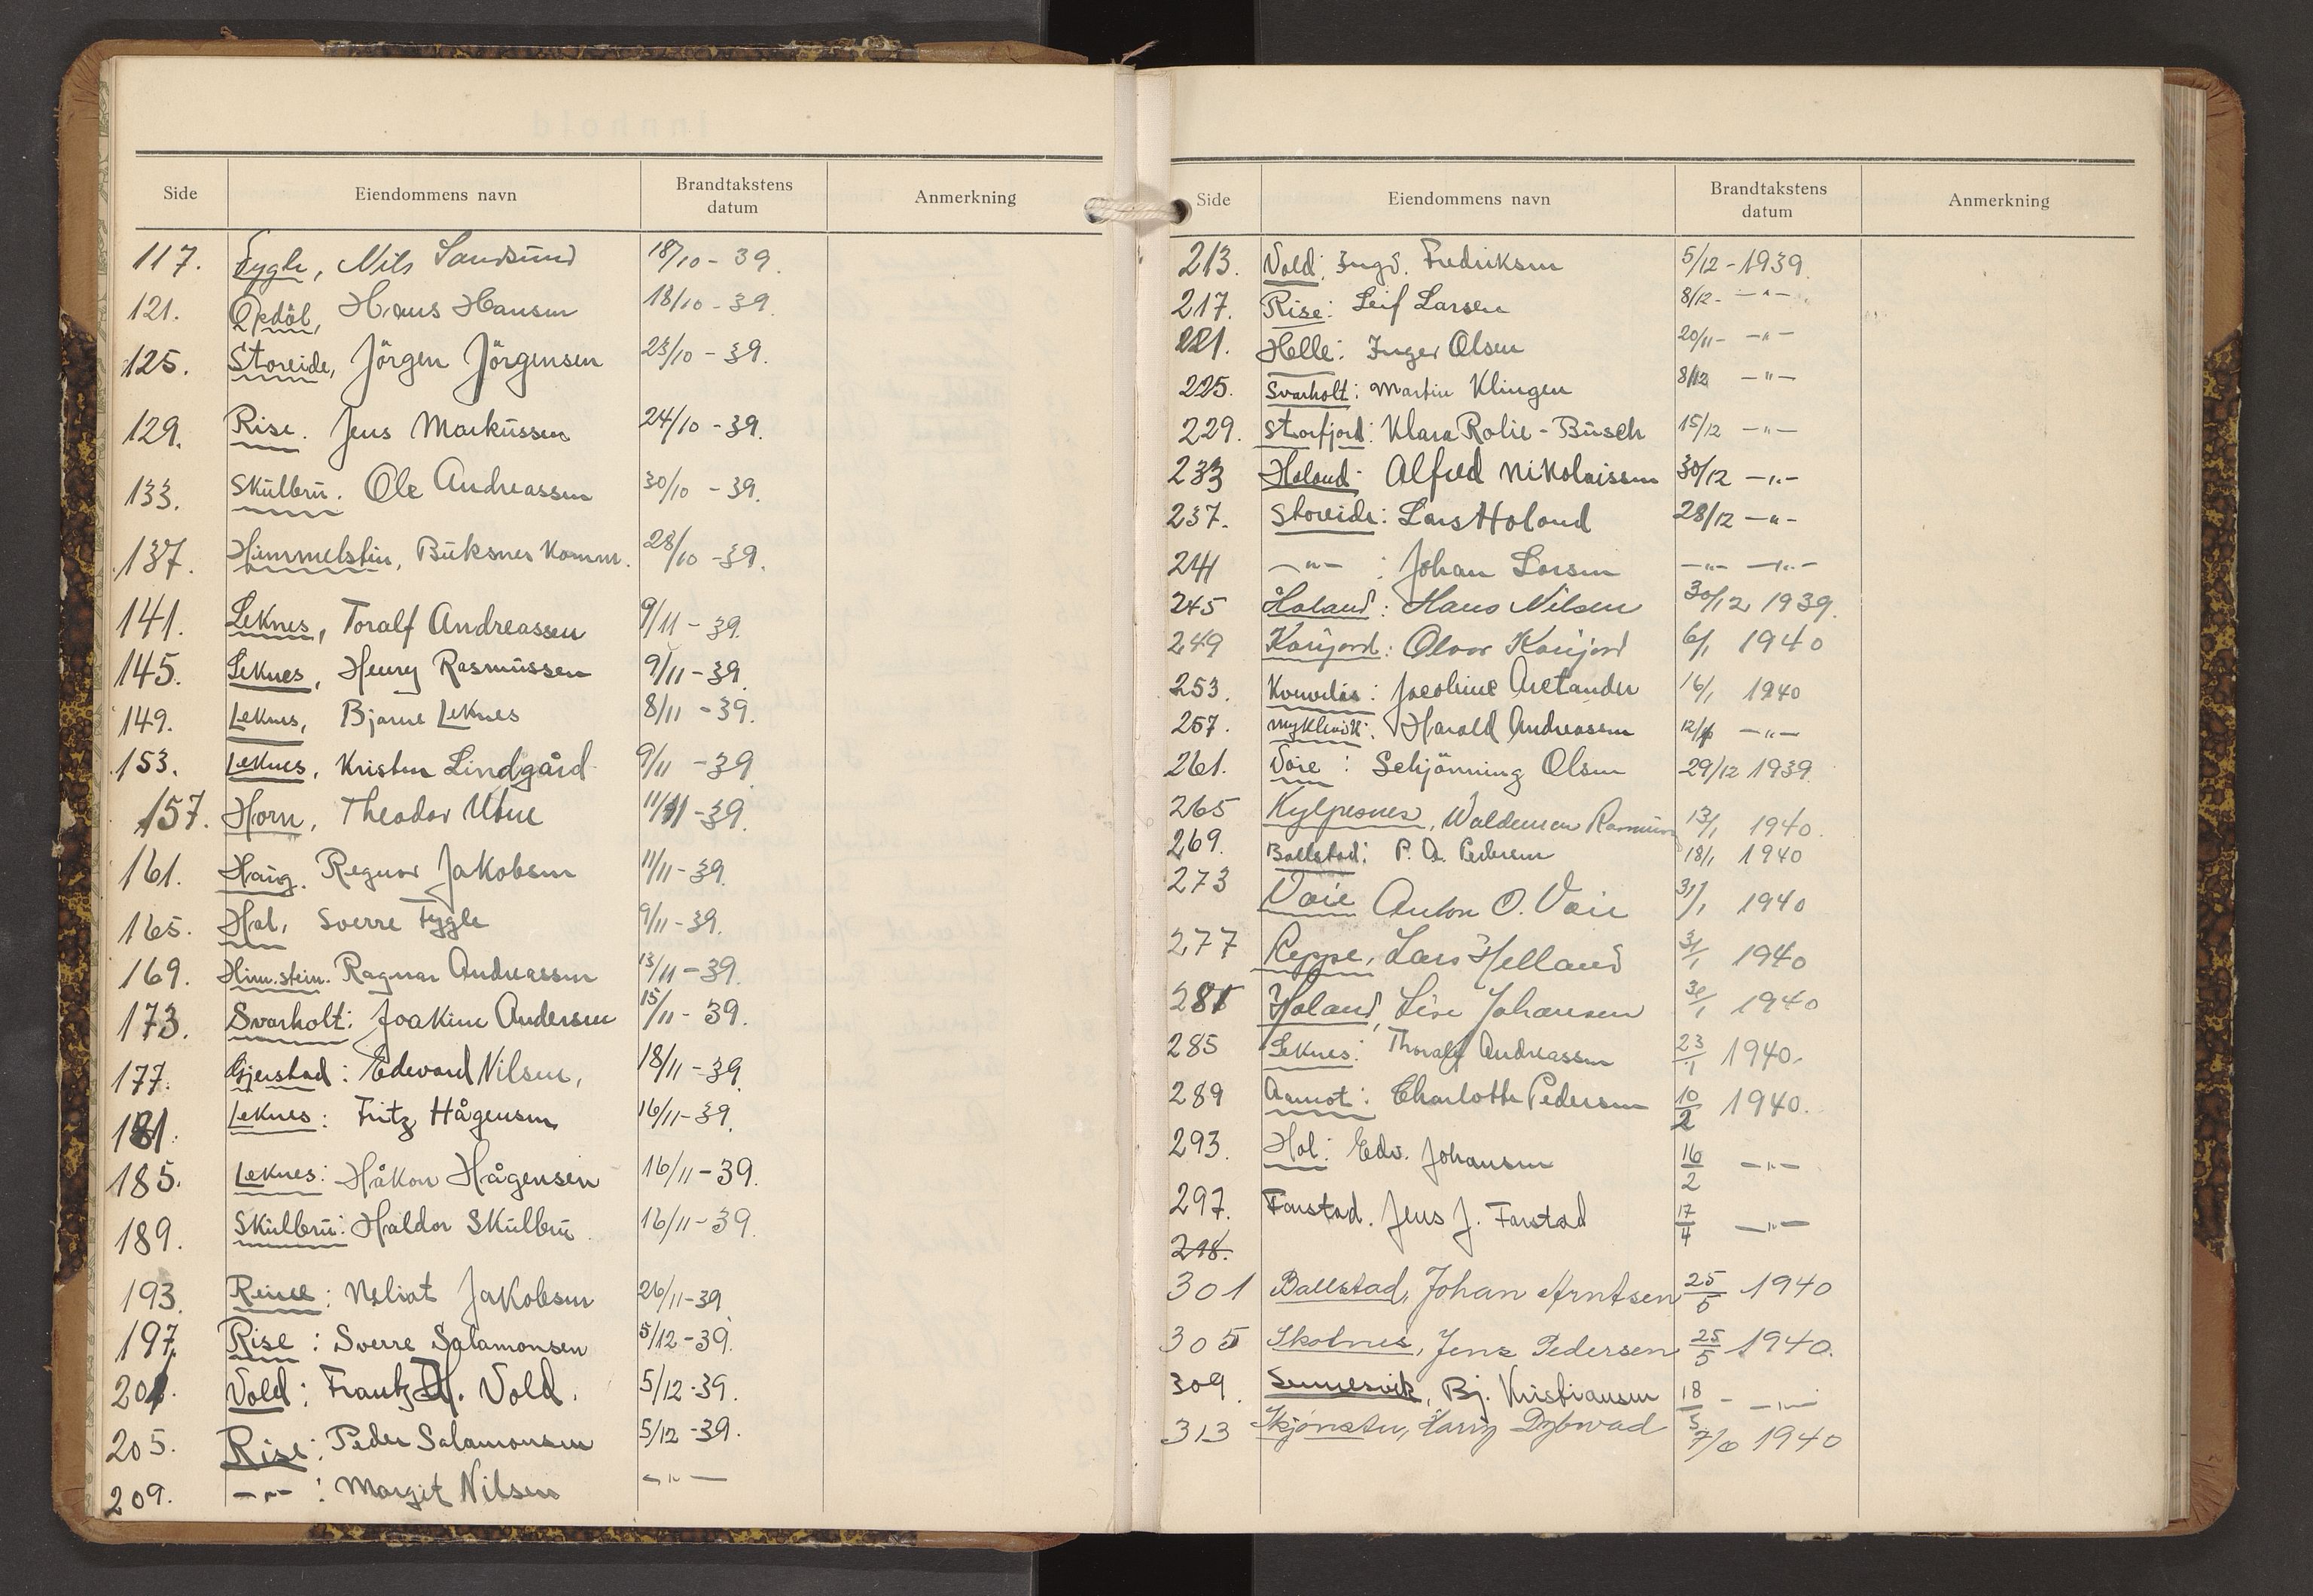 Side Eiendommens navn Brandtakstens datum Anmerkning
117. Fygle, Nils Sandsund 18/10 - 39.
121. Opdøl, Hans Hansen 18/10 - 39.
125. Storeide, Jörgen Jörgensen 23/10 - 39.
129. Rise. Jens Markussen 24/10 - 39.
133. Skulbru. Ole Andreassen 30/10 - 39.
137. Himmelstein, Buksnes Komm. 28/10 - 39.
141. Leknes, Toralf Andreassen 9/11 - 39.
145. Leknes, Henry Rasmussen 9/11 - 39.
149. Leknes, Bjarne Leknes 8/11 - 39.
153. Leknes, Kristen Lindgård 9/11 - 39
157. Horn, Theodor Utne 11/11 - 39.
161. Haug. Regnor Jakobsen 11/11 - 39.
165. Hol, Sverre Fygle 9/11 - 39.
169. Him.stein. Ragnar Andreassen 13/11 - 39.
173. Svarholt: Joakim Andersen 15/11 - 39.
177. Gjerstad: Edvard Nilsen, 18/11 - 39.
181. Leknes: Fritz Hågensen 16/11 - 39.
185. Leknes: Håkon Hågensen 16/11 - 39.
189. Skulbru: Haldor Skulbru 16/11 - 39.
193. Reine: Jakobsen 26/11 - 39
197. Rise: Sverre Salamonsen 5/12 - 39.
201. Vold: Frantz H. Vold. 5/12 - 39.
205. Rise: Peder Salamonsen 5/12 - 39.
209. -"- : Margit Nilsen -"-
Side Eiendommens navn Brandtakstens datum Anmerkning
213. Vold: Ingv. Fredriksen 5/12 - 1939.
217. Rise: Leif Larsen 8/12 - -"-
221. Helle: Inger Olsen 20/11 - -"-
225. Svarholt: Martin Klingen 8/12 -"-
229. Storfjord: Klara Rolie - Busch 15/12 -"-
233 Holand: Alfred Nikolaisen 30/12 -"-
237. Storeide: Lars Holand 28/12 -"-
241 -"- : Johan Larsen -"- -"-
245 Holand: Hans Nilsen 30/12 1939.
249 Kaujord: Olvar Kaujord 6/1 1940
253. Jacobine Arctander 16/1 1940
257. Myklevik: Harald Andreassen 12/1 -"-
261. Voie: Schjönning Olsen 29/12 1939.
265 Kylpesnes, Waldemar Rasmussen 13/1 1940.
269. Ballstad: P. A. Pedersen 18/1 1940
273 Voie Anton O. Voie 31/1 1940
277 Reppe, Lars Helland 3/1 1940
281 Holand, Lise Johansen 1940
285 Leknes: Thoralf Andreassen 23/1 1940.
289 Aamot: Charlotte Pedersen 10/2 1940.
293. Hol: Edv. Johansen 16/2 -"-
297. Farstad. Jens J. Farstad 17/4 -"-
298.
301 Ballstad, Johan Arntsen 25/5 1940
305 Skotnes, Jens Pedersen 25/5 1940.
309. Sennesvik, Bj. Kristiansen 18/5 - -"-
313 Harry Dybwad 7/6 1940